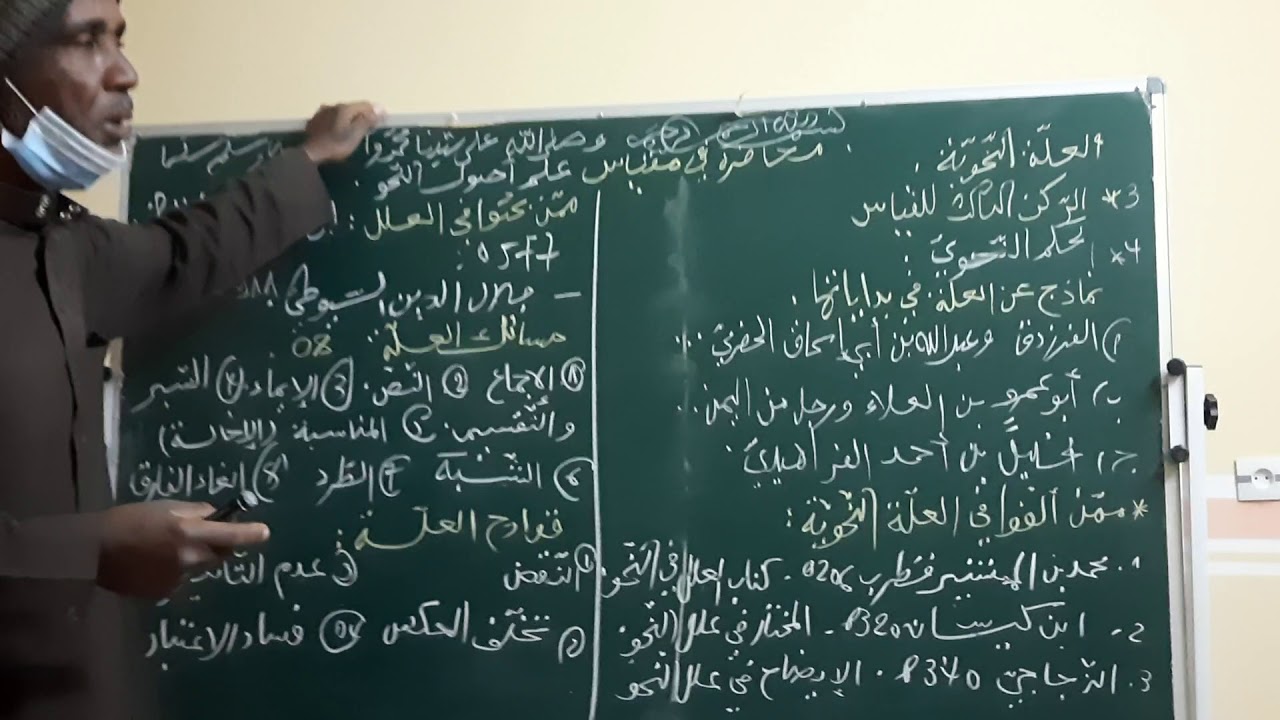 وصل الله على سيدنا محمد و
محاضرة في مقياس علم أصول النحو.
العلة النحوية.
*3 الركن الثالث للقياس
*4 الحكم النحوي.
نماذج عن العلة في بداياتها.
أ) الفرزدق وعبد الله بن أبي إسحاق الحضرمي...
ب) أبو عمرو بن العلاء ورجل من اليمن..
ج) الخليل بن أحمد الفراهيدي.
* ممن ألفوا في العلة النحوية:
1. محمد بن المستنير قطرب 206ه. كتاب العلل في النحو.
2- ابن كيسان 320ه - المختار في علل النحو.
3. الزجاجي 340ه. الإيضاح في علل النحو
ممن بحثوا في العلل:
577ه.
– جلال الدين السيوطي
مسالك العلة: 08
1) الإجماع 2) النص. 3) الإيماء. 4) السبر
والتقسيم. 5) المناسبة (الإخالة)
6) الشبه 7) الطرد 8) إلغاء الفارق
قوادح العلة:
1) النقض 3) عدم
2) تخلف العكس 04) فساد الاعتبار